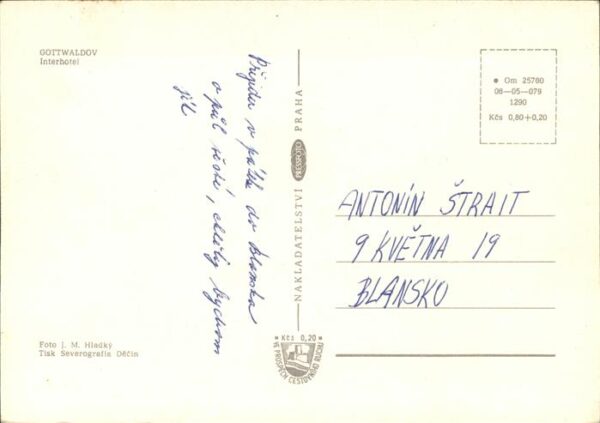 GOTTWALDOV
Interhotel
Přijedu v pátek do Blanska
o půl šesté, chtěly bychom
jít
Foto J. M. Hladký
Tisk Severografia Děčín
NAKLADATELSTVÍ PRESSFOTO PRAHA
Kčs 0,20
VE PROSPĚCH CESTOVNÍHO RUCHU
Om 25780
08-05-079
1290
Kčs 0,80+0,20
ANTONÍN ŠTRAIT
9 KVĚTNA 19
BLANSKO